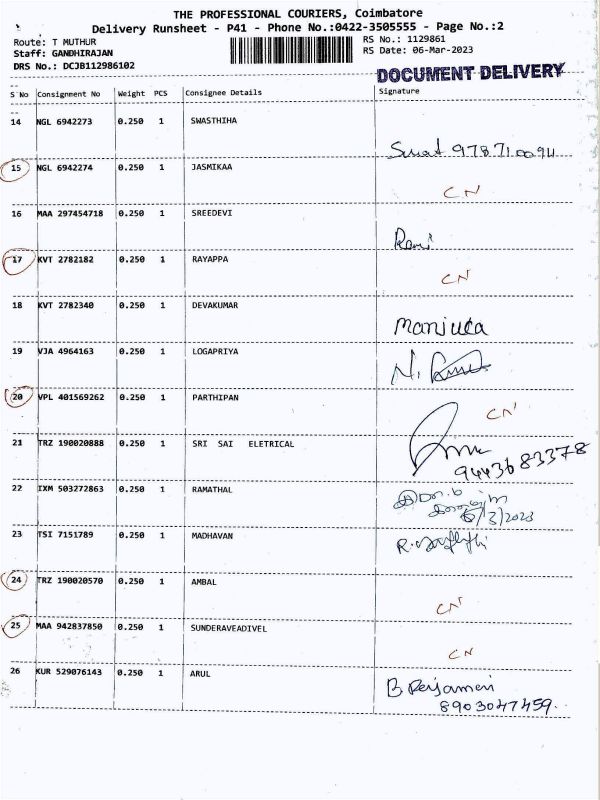 THE PROFESSIONAL COURIERS, Coimbatore
Delivery Runsheet - P41 - Phone No.:0422-3505555 - Page No.:2
Route: T MUTHUR
RS No.: 1129861
Staff: GANDHIRAJAN
RS Date: 06-Mar-2023
DRS No.: DCJB112986102
DOCUMENT DELIVERY
S No Consignment No Weight PCS Consignee Details Signature
14 NGL 6942273 0.250 1 SWASTHIHA
978710094
15 NGL 6942274 0.250 1 JASMIKAA
CN
16 MAA 297454718 0.250 1 SREEDEVI
Rani
17 KVT 2782182 0.250 1 RAYAPPA
CN
18 KVT 2782340 0.250 1 DEVAKUMAR
Manjula
19 VJA 4964163 0.250 1 LOGAPRIYA
N.
20 VPL 401569262 0.250 1 PARTHIPAN
CN
21 TRZ 190020888 0.250 1 SRI SAI ELETRICAL
9443683378
22 IXM 503272863 0.250 1 RAMATHAL
6/3/2023
23 TSI 7151789 0.250 1 MADHAVAN
R.
24 TRZ 190020570 0.250 1 AMBAL
CN
25 MAA 942837850 0.250 1 SUNDERAVEADIVEL
CN
26 KUR 529076143 0.250 1 ARUL
B.
8903047459.